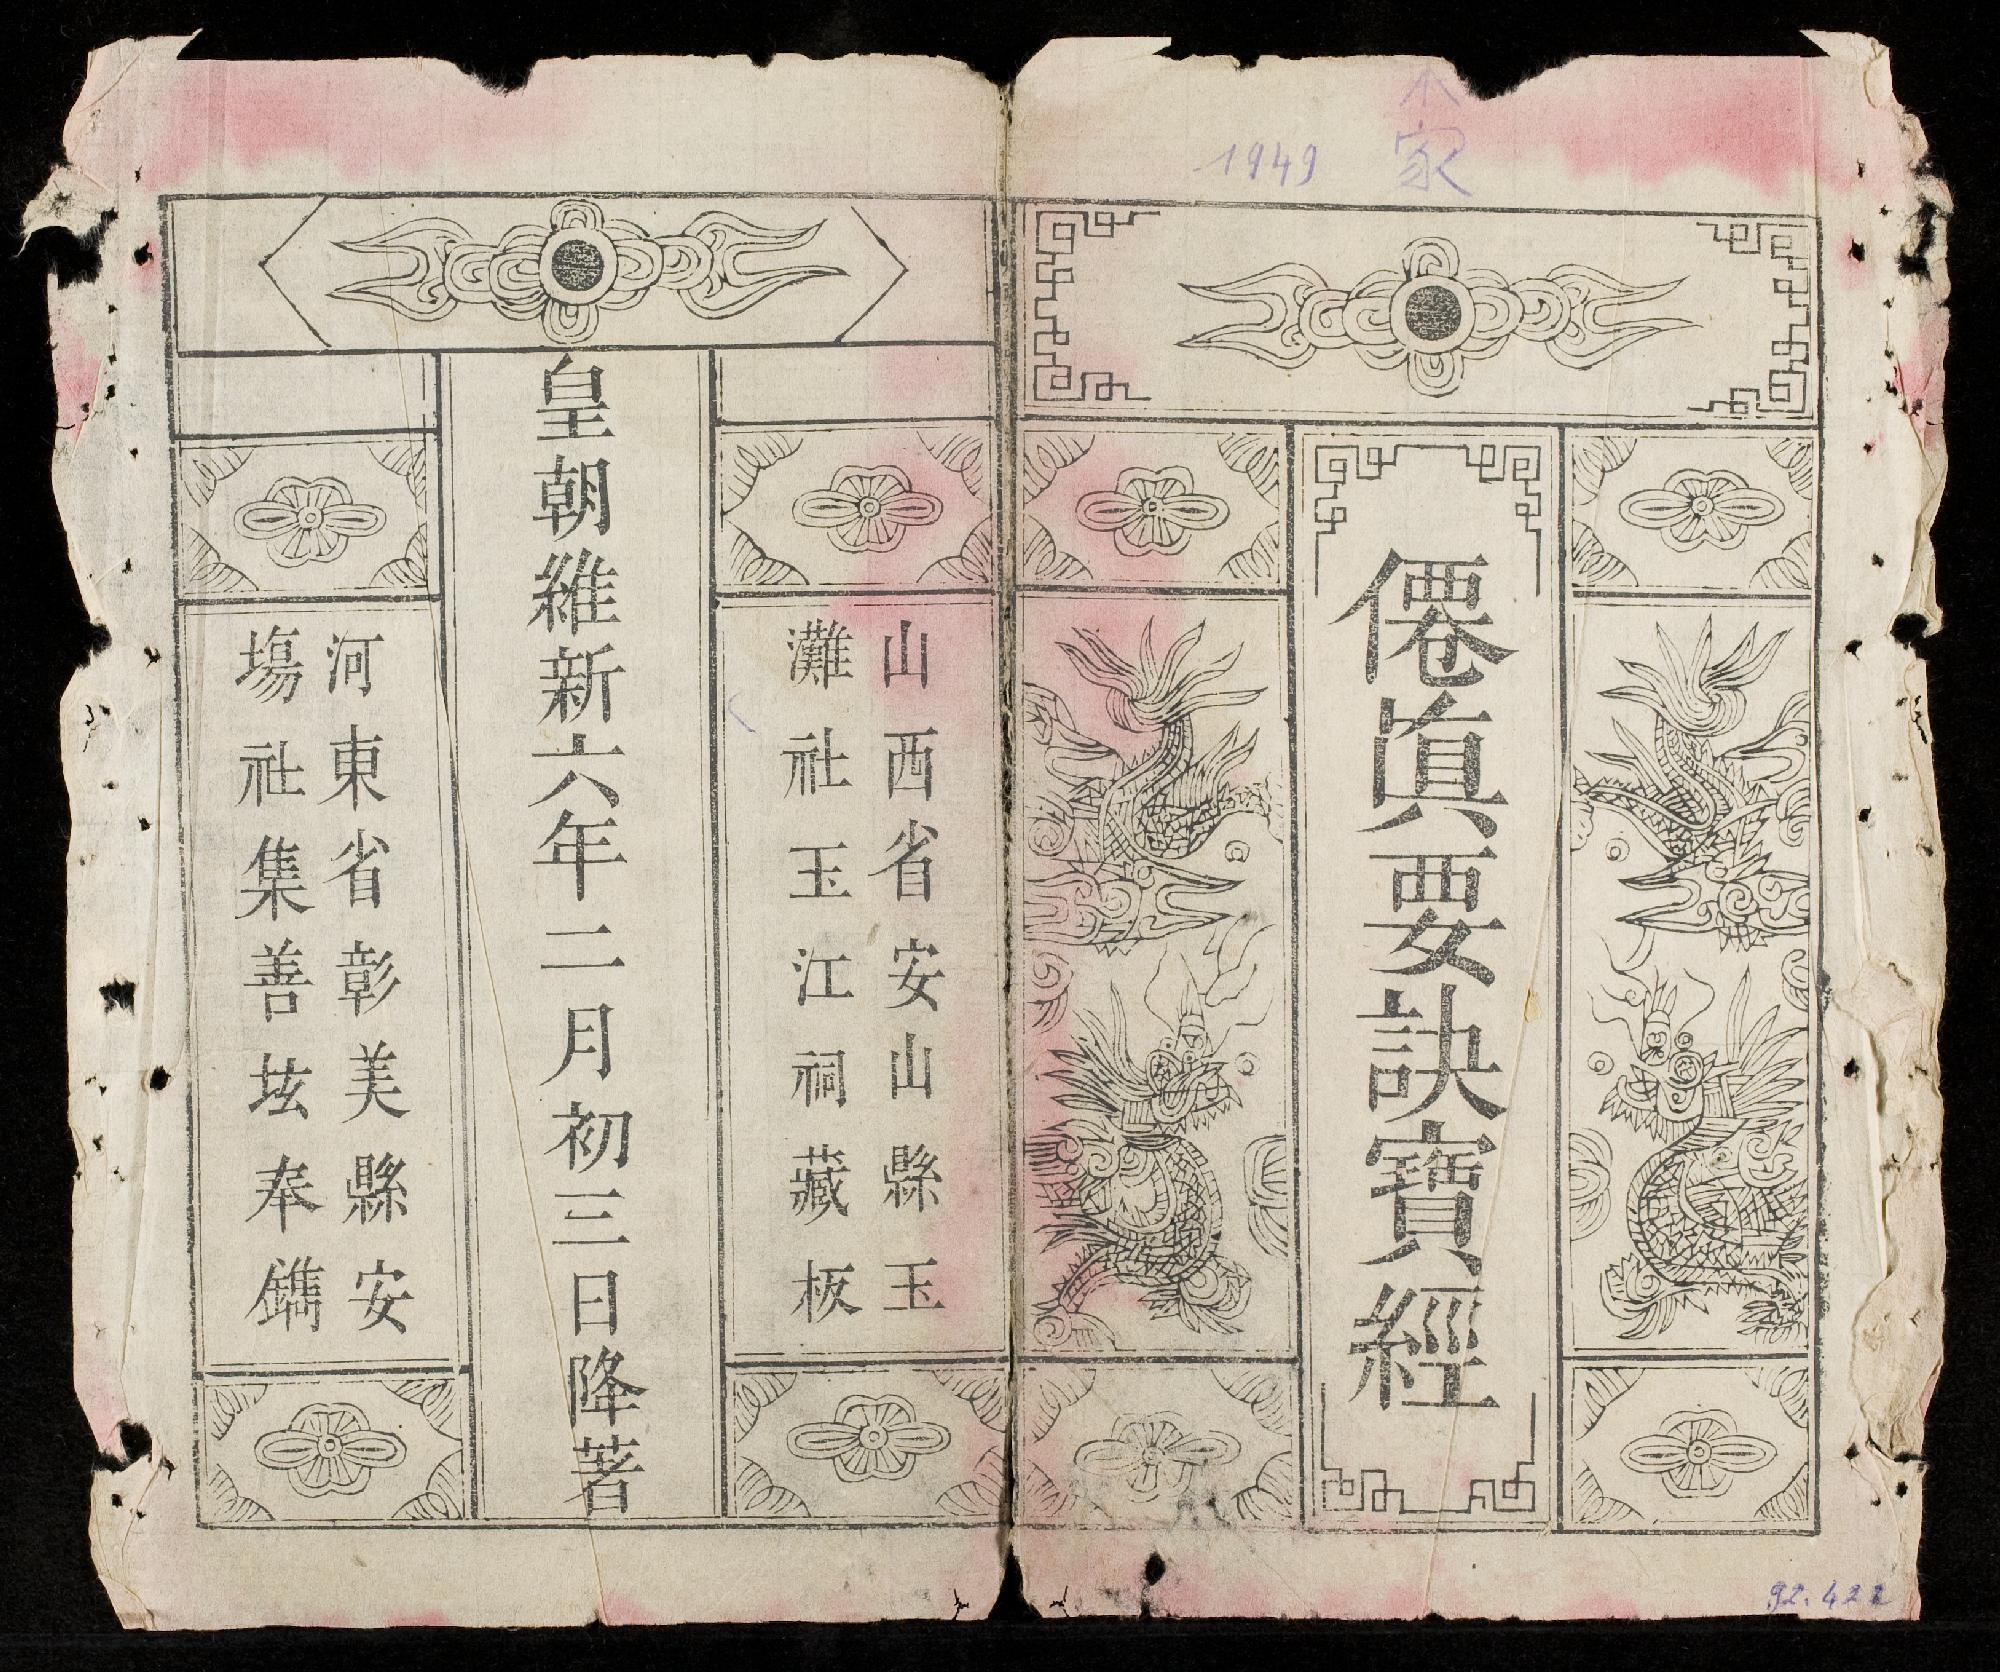 1949 本家
僊眞要訣寶經
山西省安山縣玉
灘社玉江祠藏板
皇朝維新六年二月初三日降著
河東省彰美縣安
塲社集善坛奉鐫
92.422